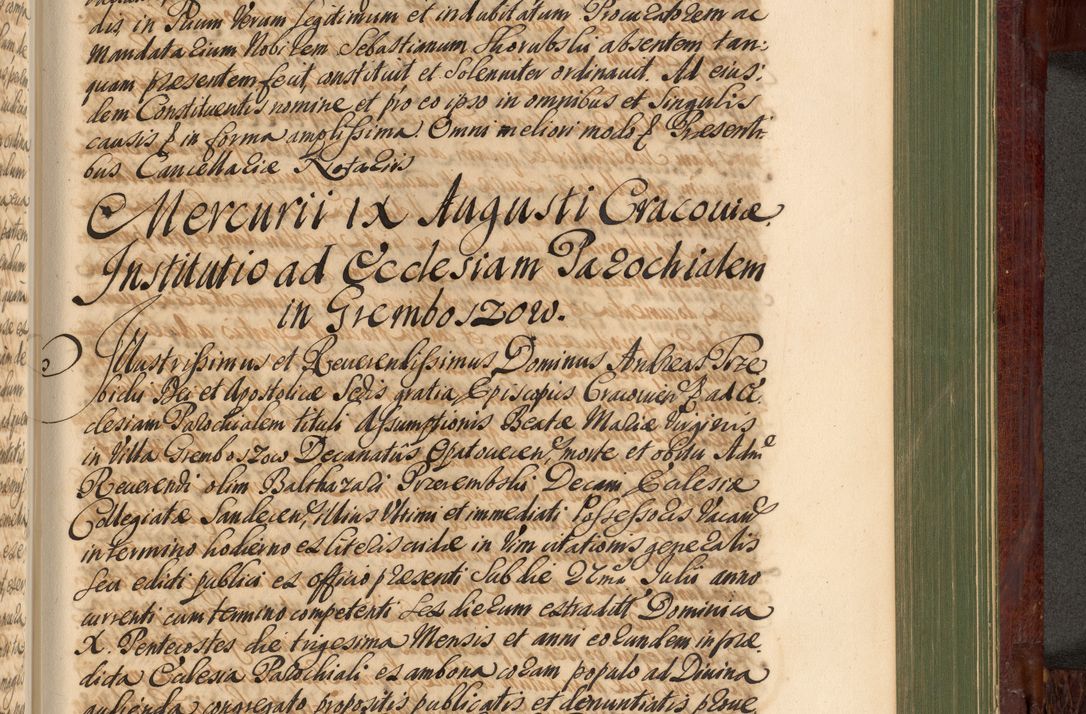 dis in Suum Verum Legitimum et indubitatum Procuratorem ac
Mandatarium Nobilem Sebastianum Skorubski absentem tan:
quam præsentem fecit, constituit et Solenniter ordinavit. Ad eius:
dem Constituentis nomine et pro eo ipso in omnibus et Singulis
causis in forma amplissima Omni meliori modo Præsenti
bus Cancellariæ Notariis
Mercurii IX Augusti Cracoviæ
Institutio ad Ecclesiam Parochialem
in Gremboszow.
Illustrissimus et Reverendissimus Dominus Andreas Trze
bicki Dei et Apostolicæ Sedis gratia Episcopus Cracovien ad Ec
clesiam Parochialem tituli Assumptionis Beatæ Mariæ Virginis
in Villa Gremboszow Decanatûs Opatovecen morte et obitu Adm
Reverendi olim Balthazari Przerembski Decani Ecclesiæ
Collegiatæ Sandecen, illius Ultimi et immediati Possessoris Vacan
in termino hodierno ex literis cridæ in Vim citationis generalis
seu edicti publici ex officio præsenti Sub die 27ma Julii anno
currenti cum termino competenti Sex dierum extraditt Dominica
X. Pentecostes die trigesima Mensis et anni eorundem in præ
dicta Ecclesia Parochiali ex ambona coram populo ad Divina
audienda congregato propositis publicatis et denunciatis prove